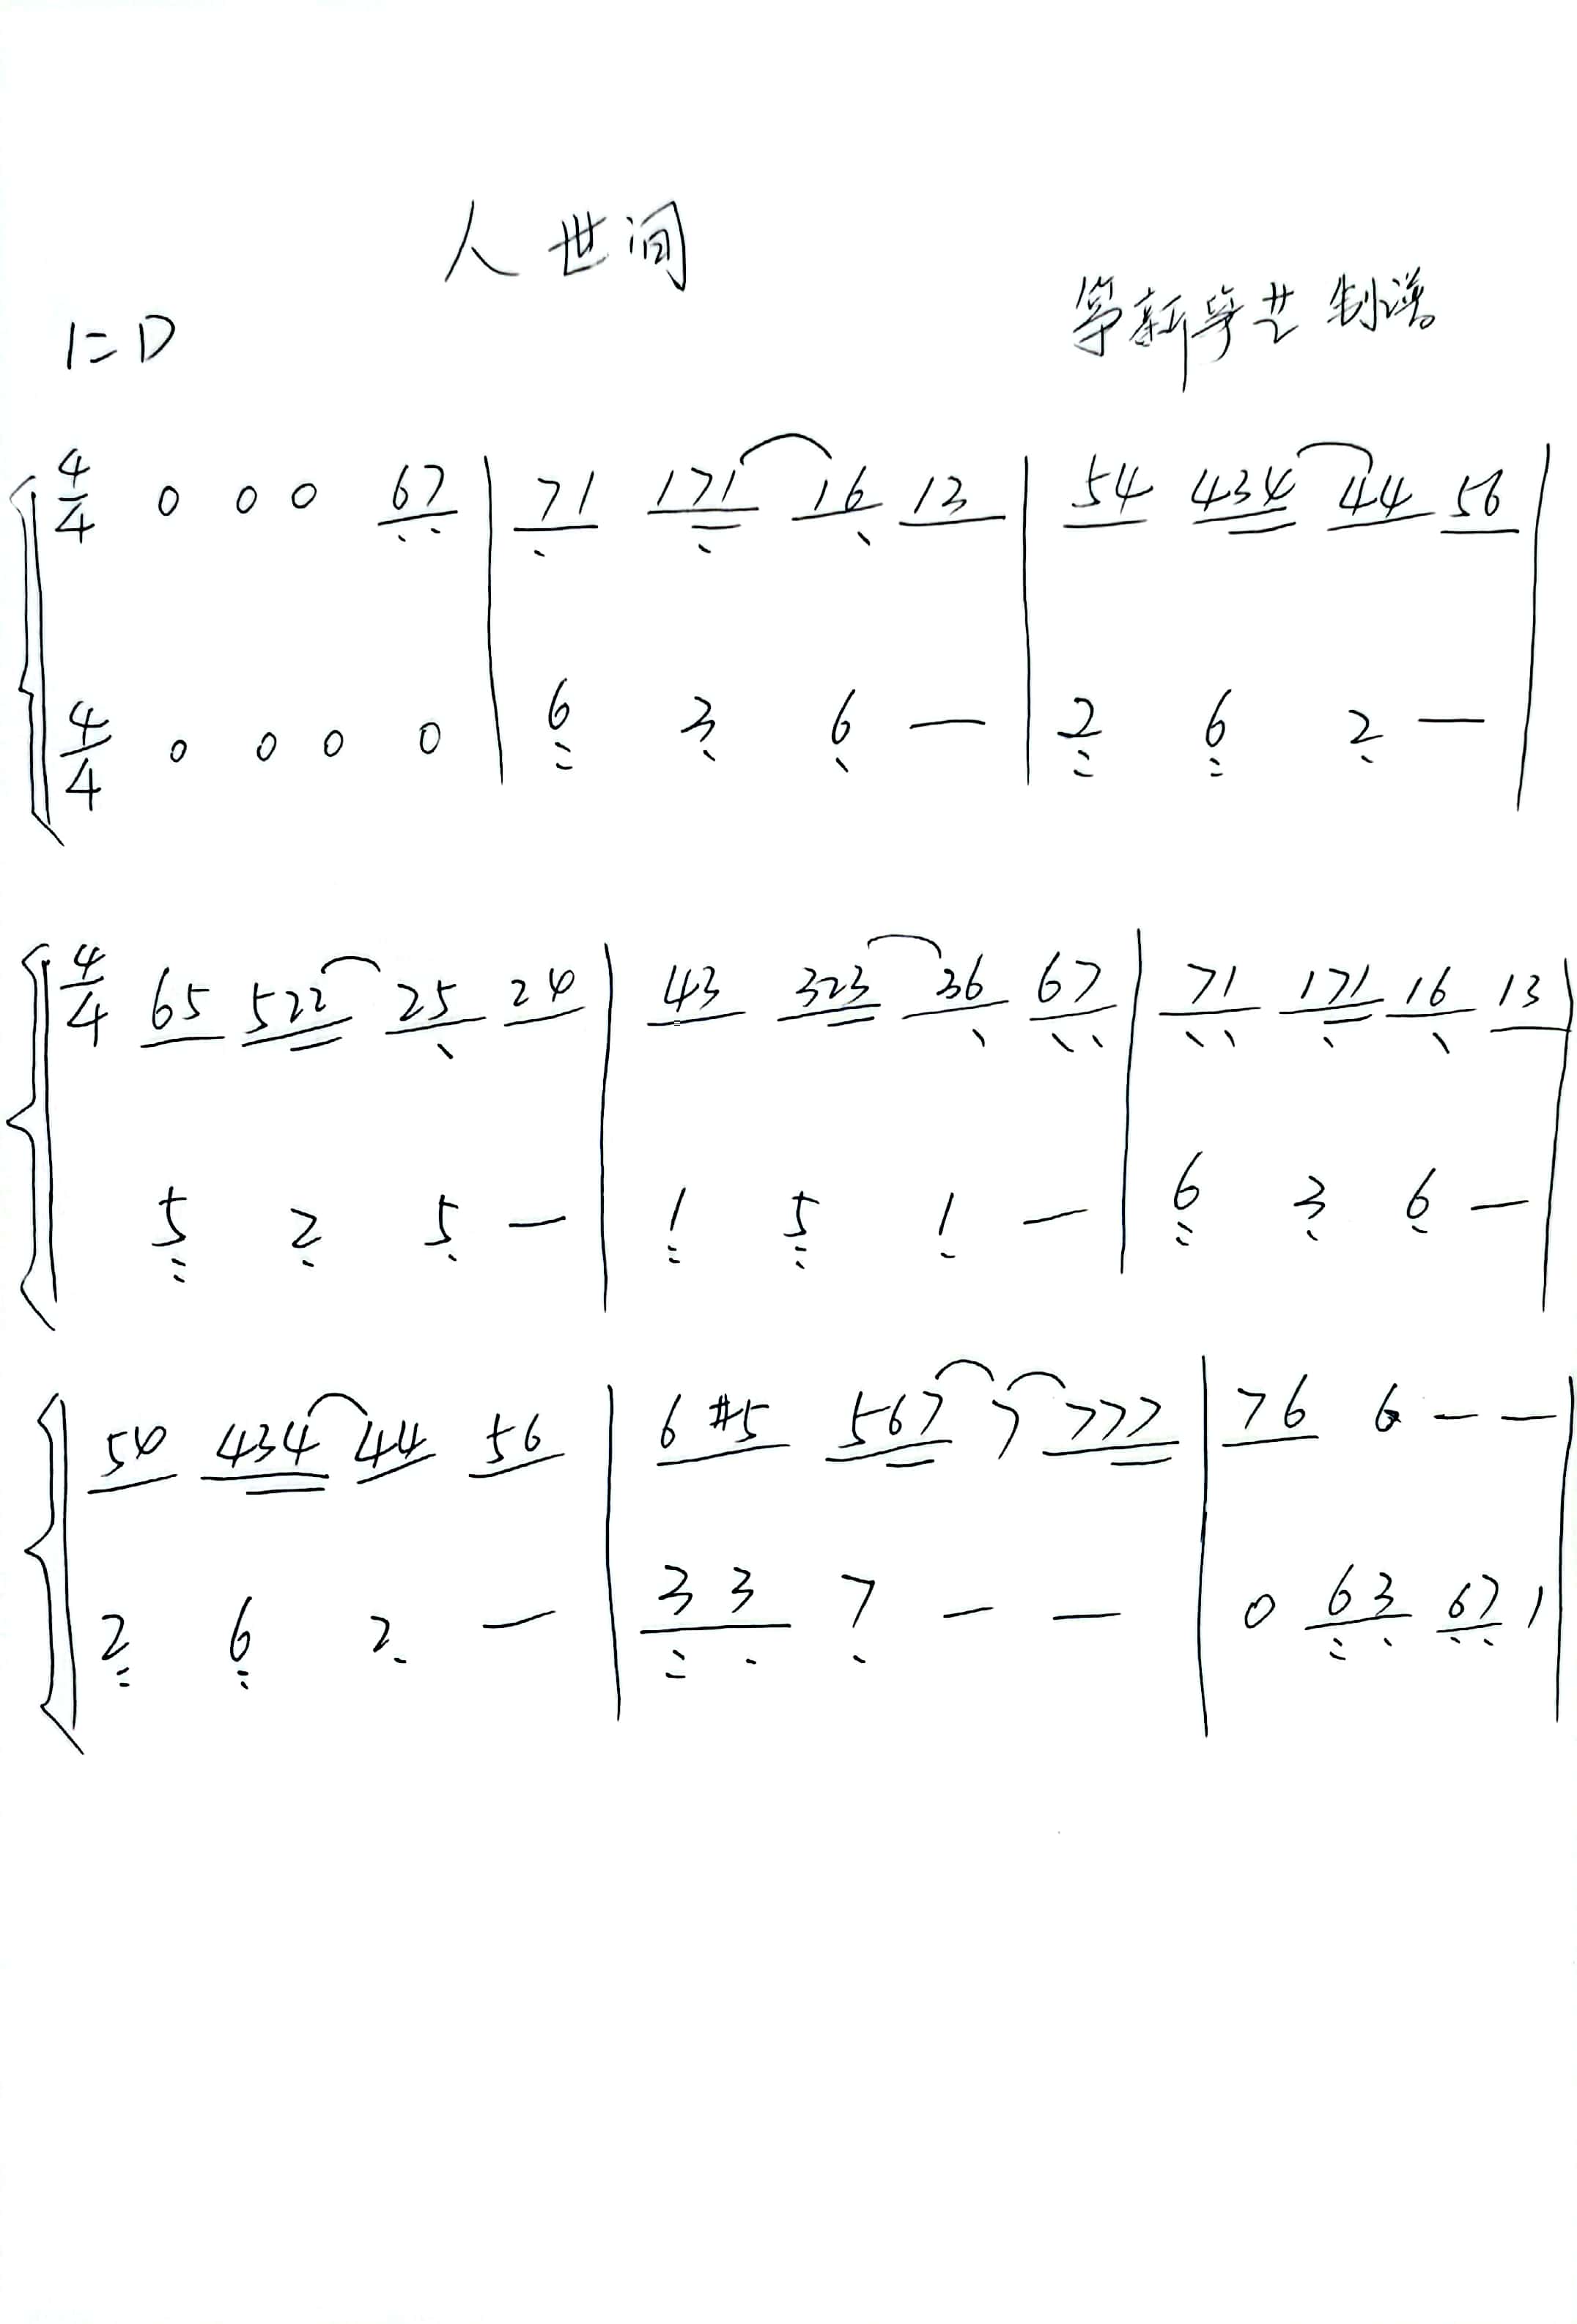 人世间
1=D
筝新筝艺 制谱
4/4 0 0 0 67 | 71 171 16 13 | 54 434 44 56 |
4/4 0 0 0 0 | 6 3 6 — | 2 6 2 — |
4/4 65 522 25 24 | 43 323 36 67 | 71 171 16 13 |
5 2 5 — | 1 5 1 — | 6 3 6 — |
54 434 44 56 | 6 #5 567 7 777 | 76 6 — — |
2 6 2 — | 3 3 7 — — | 0 63 67 1 |